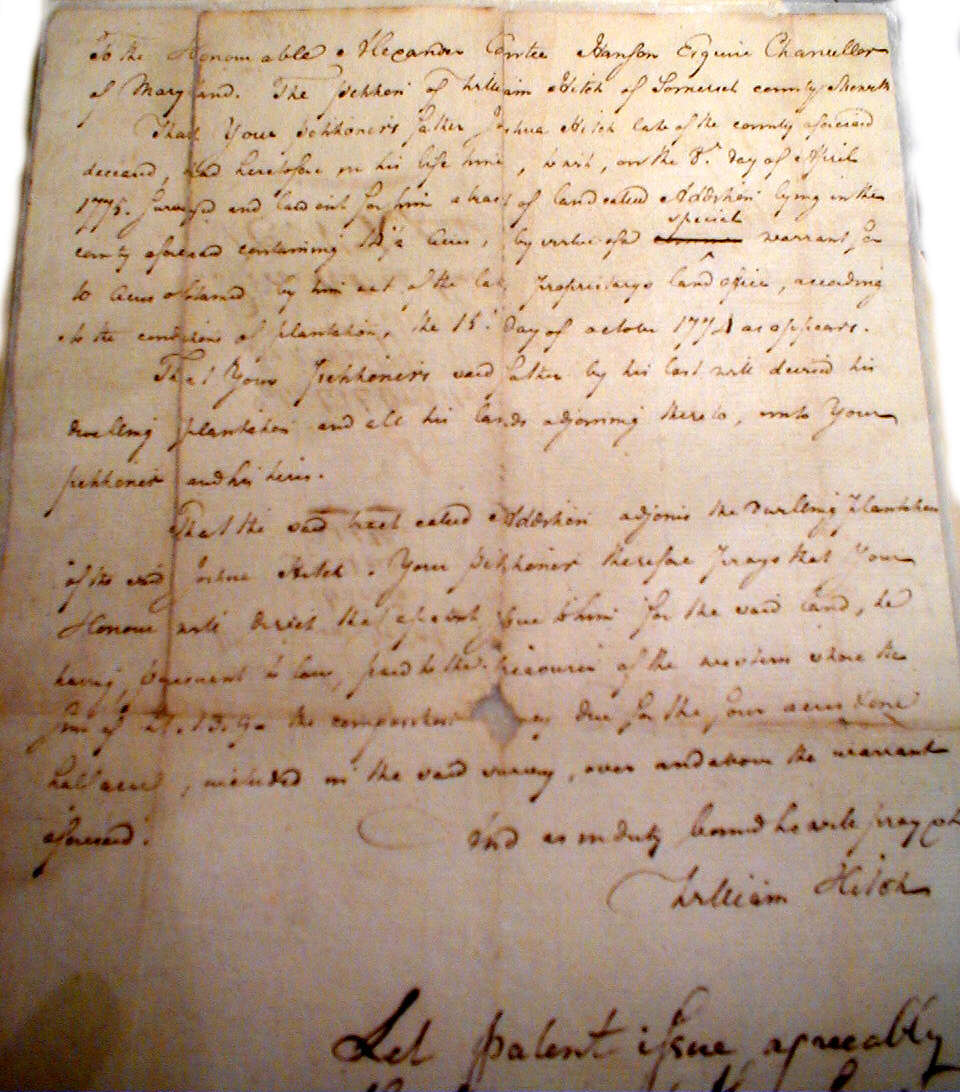 To the Honourable Alexander Contee Hanson Esquire Chancellor
of Maryland. The petition of William Hitch of Somerset county Sheweth
That Your petitioner's father Joshua Hitch late of the county aforesaid
deceased, had heretofore in his life time, to wit, on the 8th. day of April
1775. Surveyed and laid out for him a tract of land called Addition lying in the
special
county aforesaid containing 14½ acres, by virtue of a warrant for
10 acres obtained by him out of the late Proprietarys land office, according
to the conditions of plantation, the 15th. day of october 1774 as appears.
That Your Petitioner's said father by his last will devised his
dwelling plantation and all his lands adjoining thereto, unto Your
petitioner and his heirs.
That the said tract called Addition adjoins the Dwelling Plantation
of the said Joshua Hitch. Your Petitioner therefore prays that Your
Honour will direct that a patent issue to him for the said land, he
having, pursuant to law, paid to the treasurer of the western shore the
Sum of the composition due for the four acres & one
half acre, included in the said survey, over and above the warrant
aforesaid.
And as in duty bound he will pray &c
William Hitch
Let patent issue agreeably